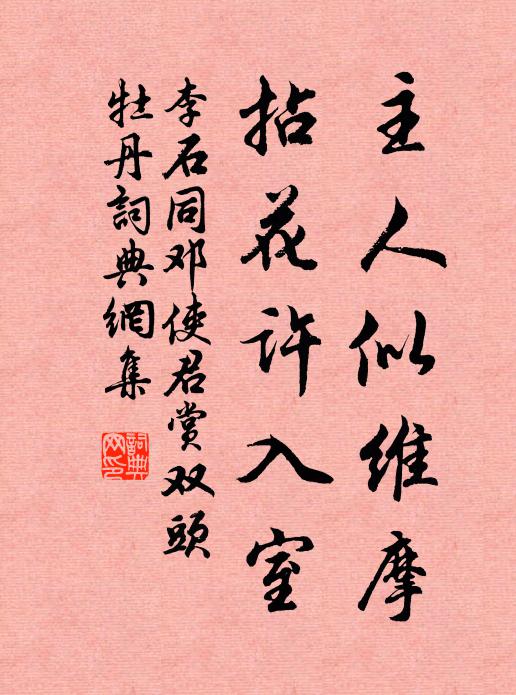 主人似维摩
拈花许入室
李石同邓使君赏双頭
牡丹詞典網集
詞典
网印